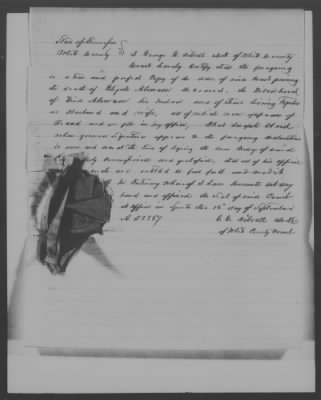 State of Tennessee
White County } I George G. Dibrell clerk of White County
Court hereby certify that the foregoing
is a true and perfect Copy of the order of said Court proving
the death of Elijah deceased, the Widowhood
of his widow and of their living together
as Husband and wife, all of which now appears of
Record and on file in my office, that Joseph
whose genuine signature appears to the foregoing
is now and was at the time of signing the same Judge of said
duly commissioned and qualified, and all of his official
acts are entitled to full faith and credit
In testimony whereof I have hereunto set my
hand and affixed the seal of said Court
at office in Sparta this day of September
A D 1857
G. G. Dibrell Clerk
of White County Court